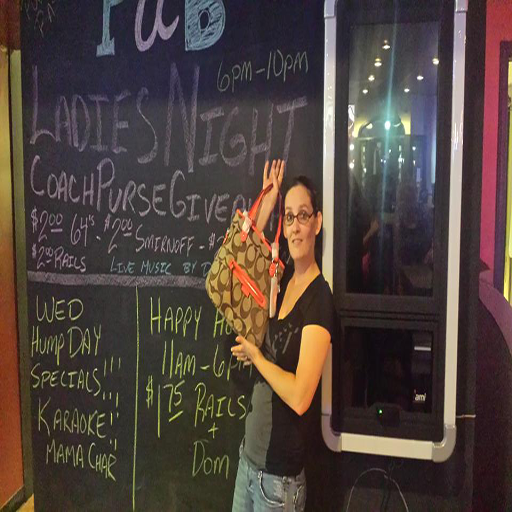 PUB
6PM-10PM
LADIES NIGHT
COACH PURSE
$2.00 64's $2.00 SMIRNOFF -
$2.00 RAILS LIVE MUSIC BY
WED
HUMP DAY
SPECIALS!!!
KARAOKE!!
MAMA CHAR
HAPPY
11AM-6PM
$1.75 RAILS
+
DOM
ami